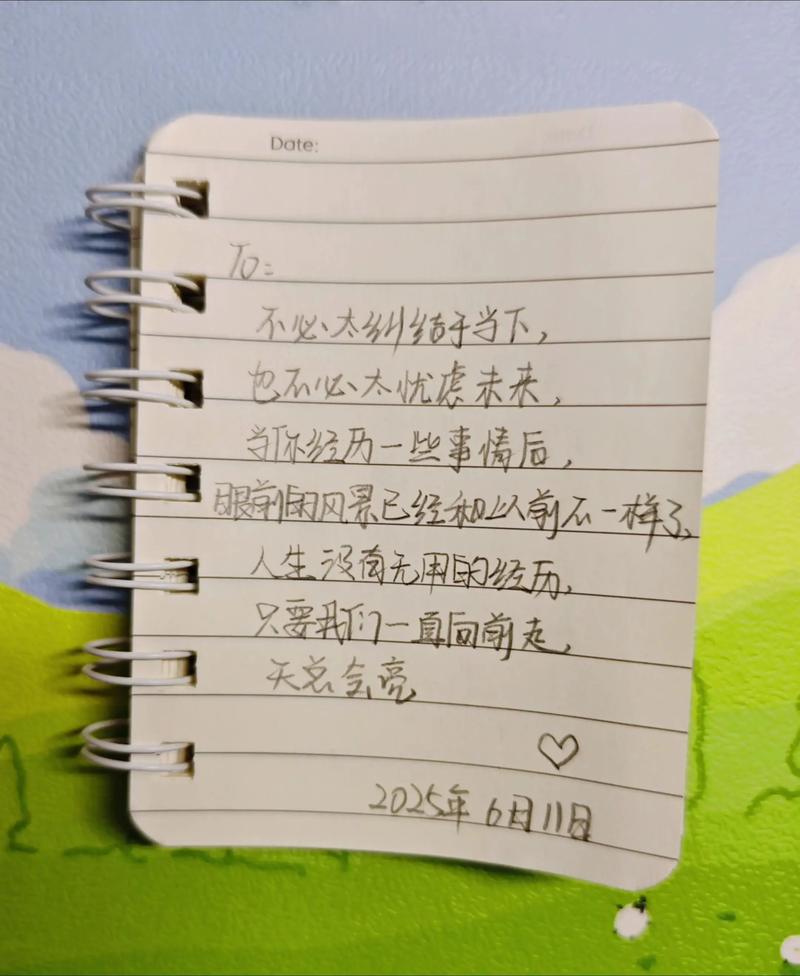 Date:
To:
不必太纠结于当下，
也不必太忧虑未来，
当你经历一些事情后，
眼前的风景已经和以前不一样了、
人生没有无用的经历，
只要我们一直向前走，
天总会亮
♡
2025年6月11日